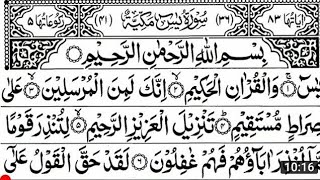 اٰيَاتُهَا ٨٣ (٣٦) سُوْرَةُ يٰسٓ مَكِّيَّةٌ (٤١) رُكُوْعَاتُهَا ٥
بِسْمِ اللّٰهِ الرَّحْمٰنِ الرَّحِيْمِ
يٰسٓ ۝١ وَالْقُرْاٰنِ الْحَكِيْمِ ۝٢ اِنَّكَ لَمِنَ الْمُرْسَلِيْنَ ۝٣ عَلٰى
صِرَاطٍ مُّسْتَقِيْمٍ ۝٤ تَنْزِيْلَ الْعَزِيْزِ الرَّحِيْمِ ۝٥ لِتُنْذِرَ قَوْمًا
مَّآ اُنْذِرَ اٰبَآؤُهُمْ فَهُمْ غٰفِلُوْنَ ۝٦ لَقَدْ حَقَّ الْقَوْلُ عَلٰٓى
10:16